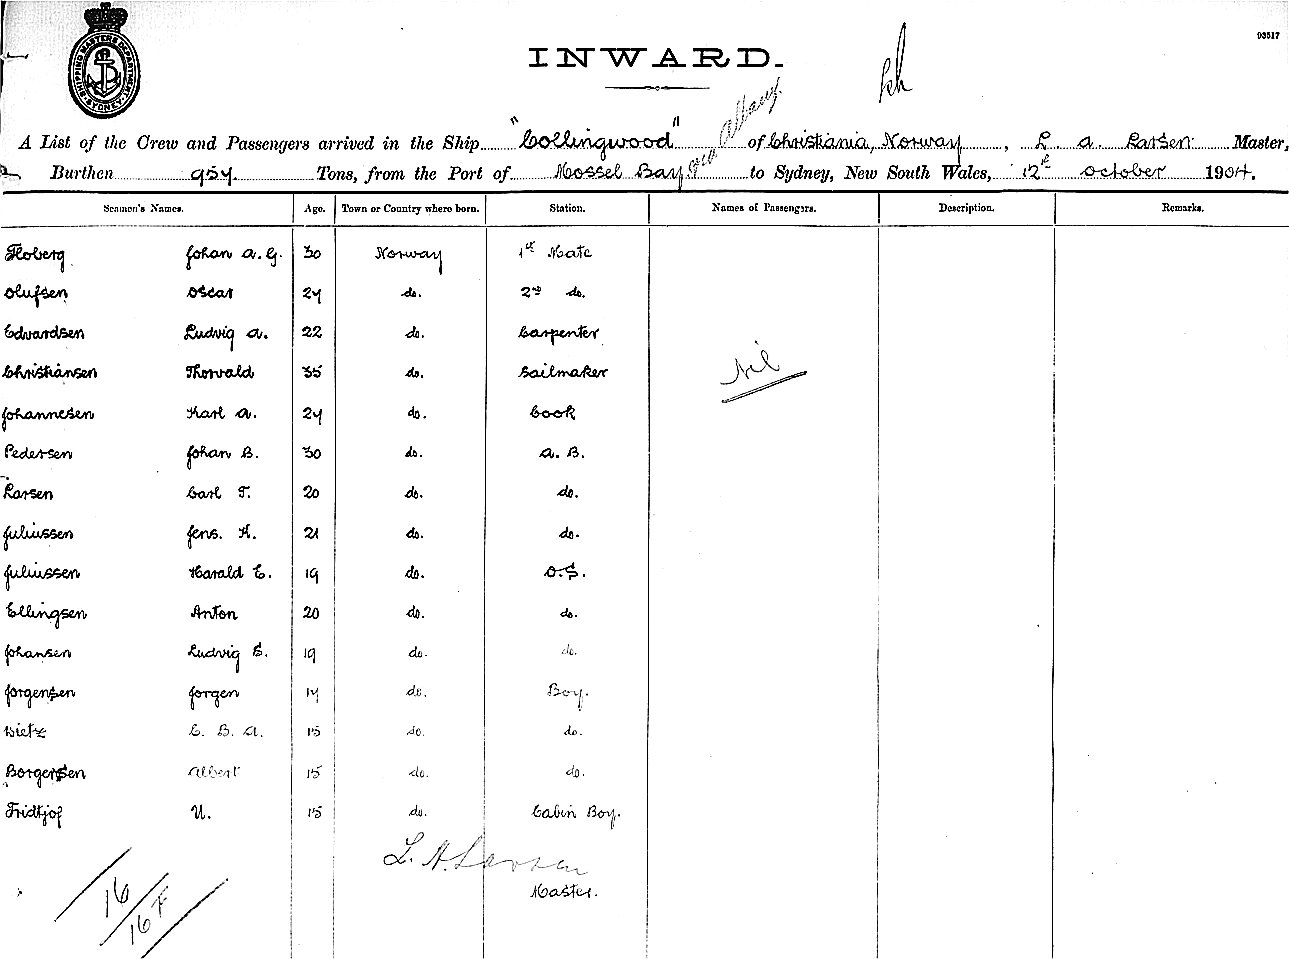 93517
SHIPPING MASTERS DEPARTMENT
SYDNEY
INWARD.
A List of the Crew and Passengers arrived in the Ship "Collingwood" of Christiania, Norway, L. A. Larsen Master,
Albany
Burthen 957 Tons, from the Port of Mossel Bay to Sydney, New South Wales, 12th October 1904.
Seamen's Names. Age. Town or Country where born. Station. Names of Passengers. Description. Remarks.
Floberg Johan A. G. 30 Norway 1st Mate
Olufsen Oscar 27 do. 2nd do.
Edvardsen Ludvig A. 22 do. Carpenter
Christiansen Thorvald 35 do. Sailmaker
Nil
Johannesen Karl A. 27 do. Cook
Pedersen Johan B. 30 do. A. B.
Larsen Carl T. 20 do. do.
Juliussen Jens. K. 21 do. do.
Juliussen Harald E. 19 do. O.S.
Ellingsen Anton 20 do. do.
Johansen Ludvig E. 19 do. do.
Jorgensen Jorgen 17 do. Boy.
C. B. A. 15 do. do.
Borgersen Albert 15 do. do.
Fridtjof U. 15 do. Cabin Boy.
L. A. Larsen
Master.
16
16 F